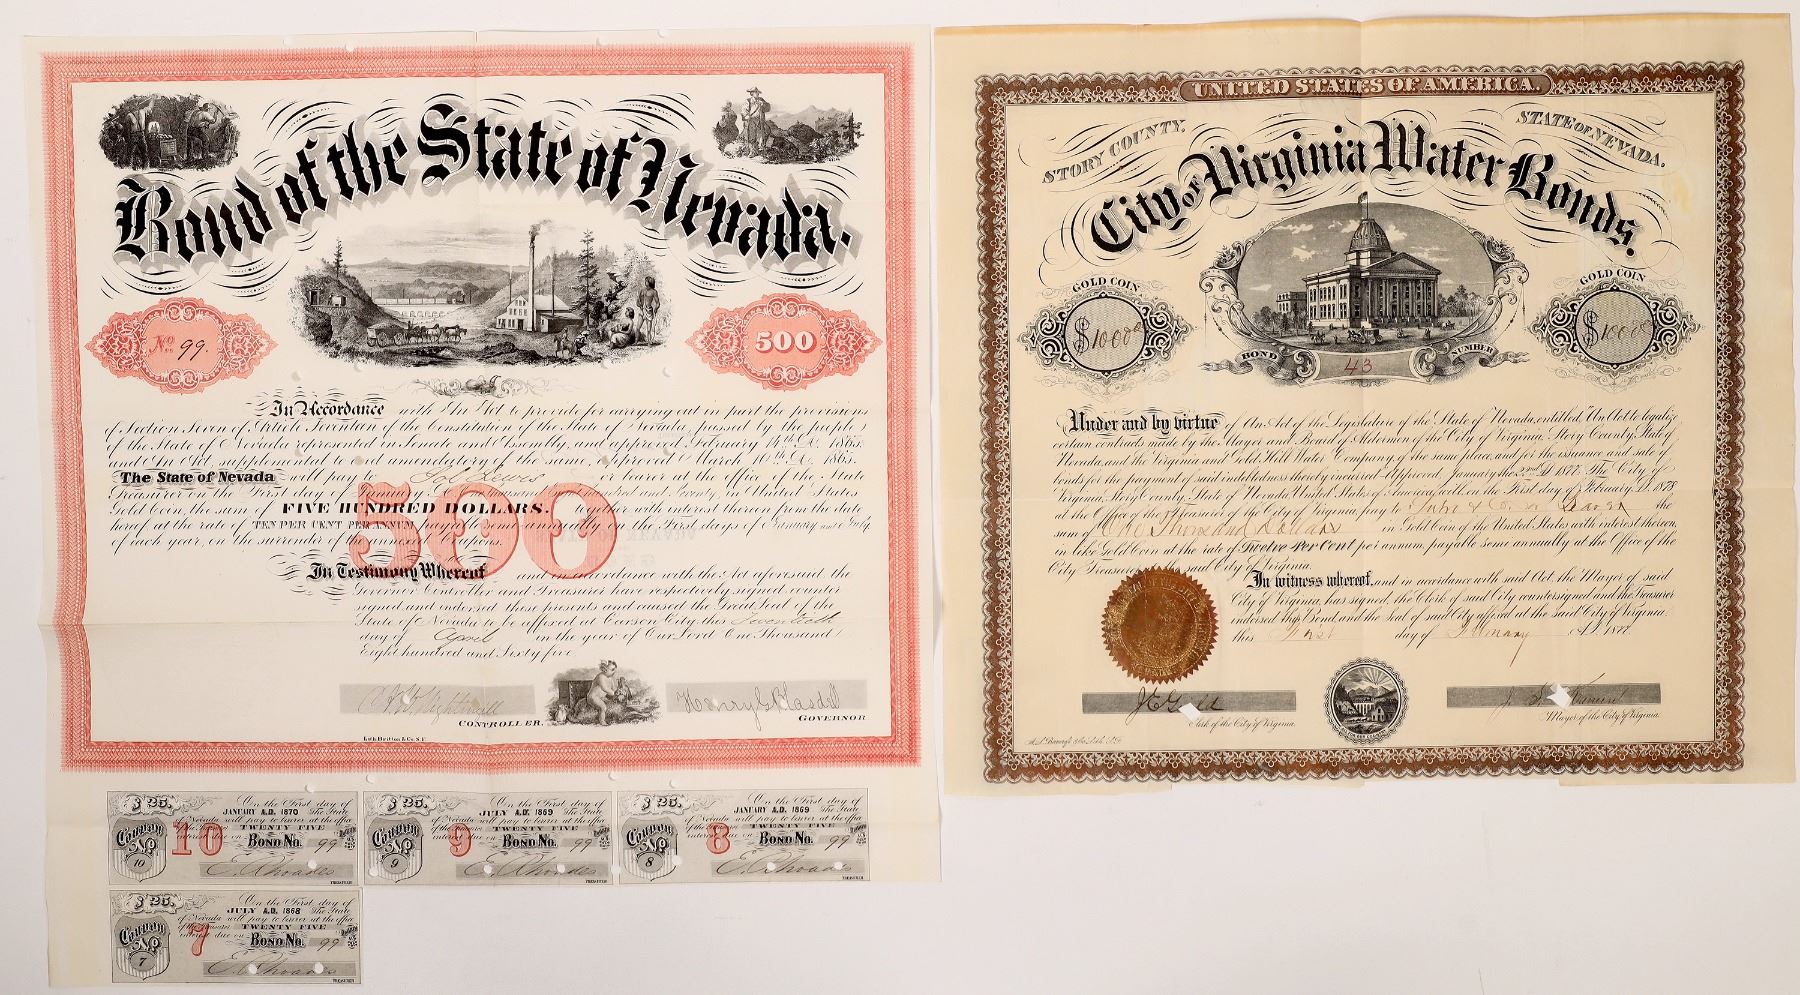 Bond of the State of Nevada.
No. 99.
500
In Accordance with An Act to provide for carrying out in part the provisions
of Section Seven of Article Seventeen of the Constitution of the State of Nevada, passed by the people
of the State of Nevada represented in Senate and Assembly, and approved February 14th A.D. 1865.
and An Act, supplemental to and amendatory of the same, approved March 10th A.D. 1865.
The State of Nevada will pay to Sol Lewis or bearer at the office of the State
Treasurer on the First day of January in United States
Gold Coin, the sum of FIVE HUNDRED DOLLARS. together with interest thereon from the date
hereof at the rate of TEN PER CENT PER ANNUM payable semi annually on the First days of January and July,
of each year, on the surrender of the annexed Coupons.
500
In Testimony Whereof and in accordance with the Act aforesaid the
Governor Controller and Treasurer have respectively signed counter
signed and endorsed these presents and caused the Great Seal of the
State of Nevada to be affixed at Carson City this
day of April in the year of Our Lord One Thousand
Eight hundred and Sixty five.
CONTROLLER.
Henry G Blasdel
GOVERNOR
Lith. Britton & Co. S.F.
$25. On the First day of
JANUARY A.D. 1870 The State
of Nevada will pay to bearer at the office
of the Treasurer TWENTY FIVE
interest due on BOND No. 99
Coupon No. 10
10
E. Rhoades
TREASURER
$25. On the First day of
JULY A.D. 1869 The State
of Nevada will pay to bearer at the office
of the Treasurer TWENTY FIVE
interest due on BOND No. 99
Coupon No. 9
9
E. Rhoades
TREASURER
$25. On the First day of
JANUARY A.D. 1869 The State
of Nevada will pay to bearer at the office
of the Treasurer TWENTY FIVE
interest due on BOND No. 99
Coupon No. 8
8
E. Rhoades
TREASURER
$25. On the First day of
JULY A.D. 1868 The State
of Nevada will pay to bearer at the office
of the Treasurer TWENTY FIVE
interest due on BOND No. 99
Coupon No. 7
7
E. Rhoades
TREASURER
UNITED STATES OF AMERICA.
STORY COUNTY. STATE OF NEVADA.
City of Virginia Water Bonds.
GOLD COIN
$1000
GOLD COIN
$1000
BOND NUMBER
43
Under and by virtue of An Act of the Legislature of the State of Nevada, entitled "An Act to legalize
certain contracts made by the Mayor and Board of Aldermen of the City of Virginia Story County, State of
Nevada, and the Virginia and Gold Hill Water Company, of the same place, and for the issuance and sale of
bonds for the payment of said indebtedness thereby incurred" Approved, January the 22nd 1877. The City of
Virginia, Story County, State of Nevada, United States of America, will, on the First day of February A.D. 1878
at the Office of the Treasurer of the City of Virginia, pay to or Bearer the
sum of One Thousand Dollars in Gold Coin of the United States with interest thereon,
in like Gold Coin at the rate of Twelve Per Cent per annum, payable semi annually at the Office of the
City Treasurer of the said City of Virginia.
In witness whereof, and in accordance with said Act, the Mayor of said
City of Virginia, has signed, the Clerk of said City countersigned and the Treasurer
endorsed this Bond, and the Seal of said City affixed at the said City of Virginia
this First day of February A.D. 1877.
Clerk of the City of Virginia.
Mayor of the City of Virginia.